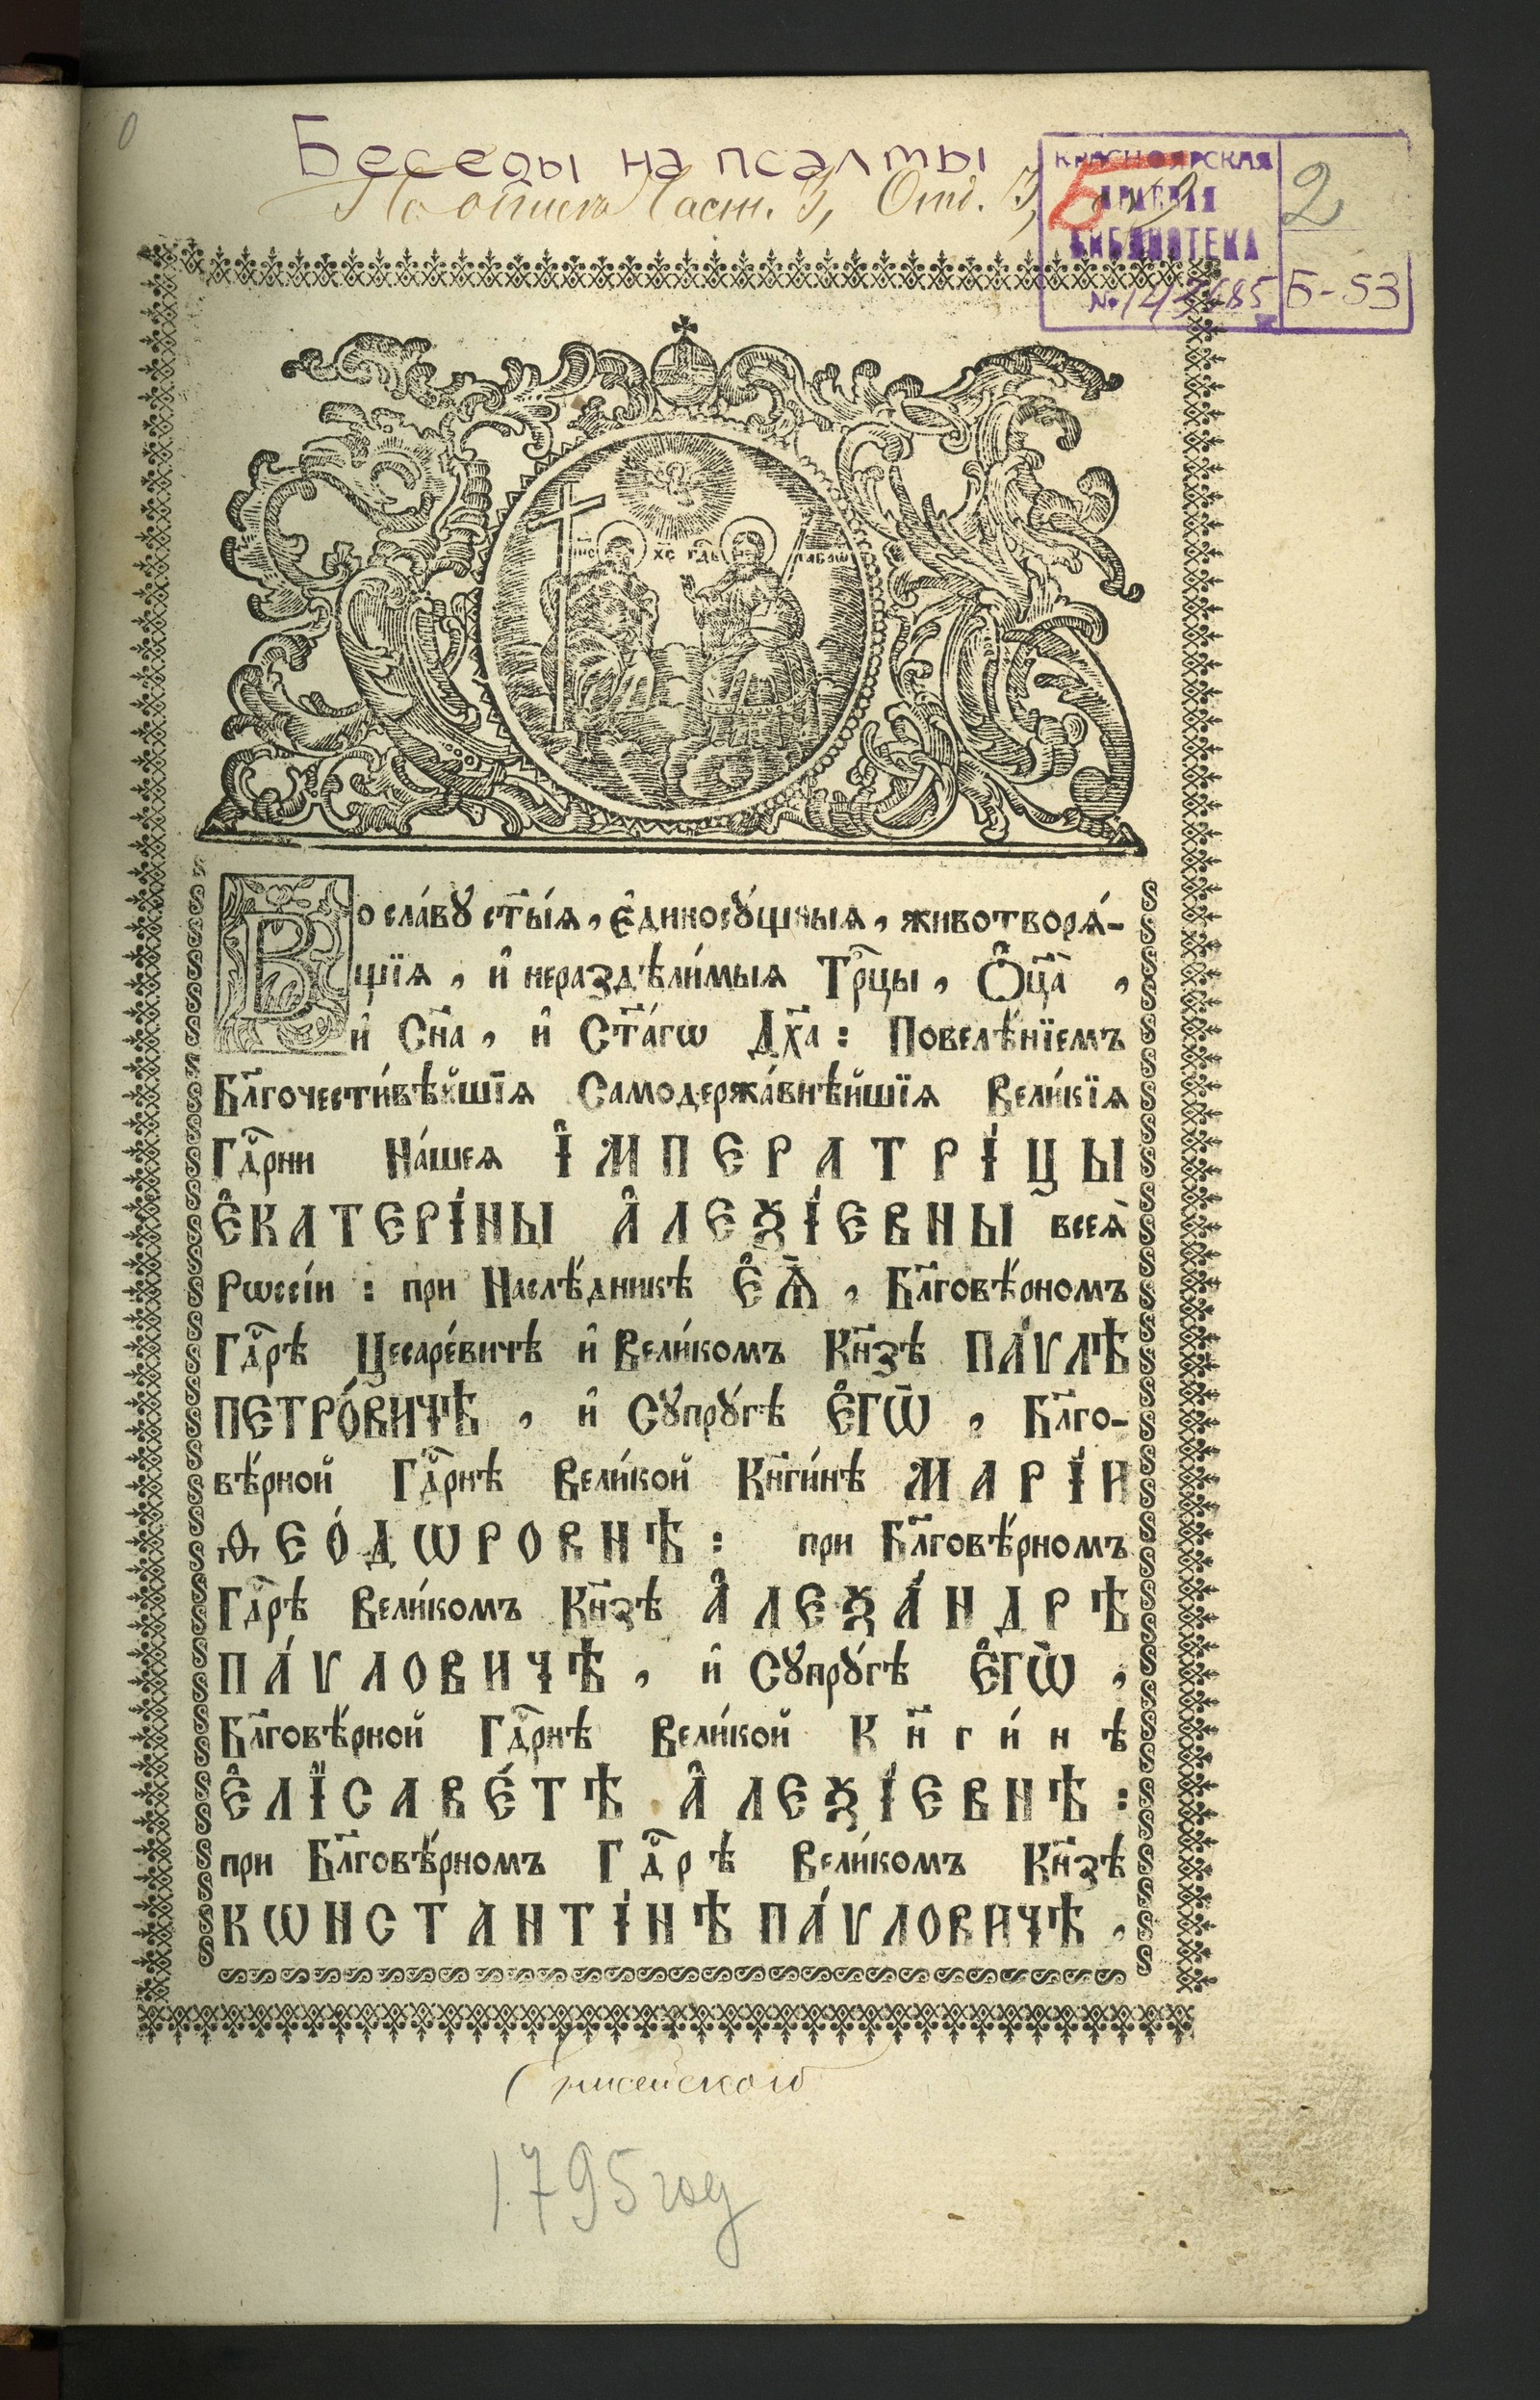 Беседы на псалмы
По описи Част. I, Отд. I,
КРАСНОЯРСКАЯ
КРАЕВАЯ
БИБЛИОТЕКА
Б
2
Б-53
І҆и҃с Х҃с Гд҇ь Саваѡѳ
Во сла́вꙋ ст҃ы́ѧ, є҆диносꙋ́щныѧ, животворѧ́-
щїѧ, и҆ нераздѣли́мыѧ Тр҇цы, Ѻ҆ц҃а̀,
и҆ Сн҃а, и҆ Ст҃а́гѡ Дх҃а: Повелѣ́нїемъ
Бл҃гочести́вѣйшїѧ Самодержа́внѣйшїѧ Вели́кїѧ
Гдⷭ҇рни На́шеѧ І҆МПЕРАТРІ́ЦЫ
Є҆КАТЕРІ́НЫ А҆ЛЕѮІ́ЕВНЫ всеѧ̀
Рѡссі́и: при Наслѣ́дникѣ Є҆Ѧ̀, Бл҃говѣ́рномъ
Гдⷭ҇рѣ Цесаре́вичѣ и҆ Вели́комъ Кн҃зѣ ПА́ѴЛѢ
ПЕТРО́ВИЧѢ, и҆ Сꙋпрꙋ́гѣ Є҆ГѠ̀, Бл҃го-
вѣ́рной Гдⷭ҇рнѣ Вели́кой Кн҃ги́нѣ МАРІ́И
ѲЕО́ДѠРОВНѢ: при Бл҃говѣ́рномъ
Гдⷭ҇рѣ Вели́комъ Кн҃зѣ А҆ЛЕѮА́НДРѢ
ПА́ѴЛОВИЧѢ, и҆ Сꙋпрꙋ́гѣ Є҆ГѠ̀,
Бл҃говѣ́рной Гдⷭ҇рнѣ Вели́кой Кн҃ги́нѣ
Є҆ЛІСАВЕ́ТѢ А҆ЛЕѮІ́ЕВНѢ:
при Бл҃говѣ́рномъ Гдⷭ҇рѣ Вели́комъ Кн҃зѣ
КѠНСТАНТІ́НѢ ПА́ѴЛОВИЧѢ,
1795 год